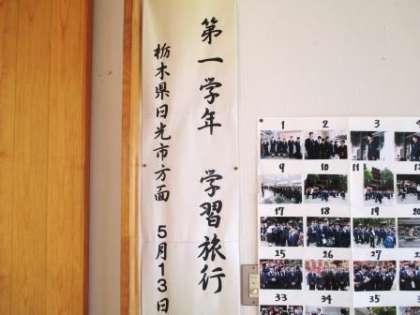 第一学年 学習旅行
栃木県日光市方面 5月13日
1 2 3 4
9 10 11 12
17 18 19 20
25 26 27 28
33 34 35